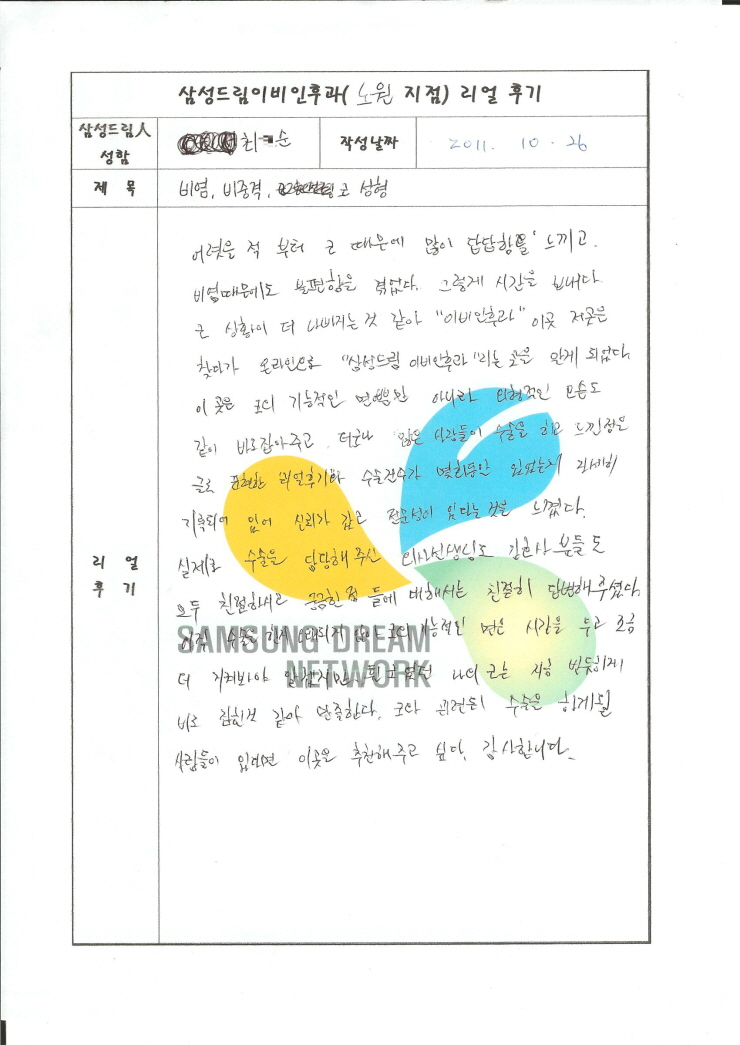 삼성드림이비인후과(노원 지점) 리얼 후기
삼성드림人 성함
최 순
작성날짜
2011. 10. 26
제 목
비염, 비중격, 코 성형
리 얼 후 기
어렸을 적 부터 코 때문에 많이 답답함을 느끼고.
비염때문에도 불편함을 겪었다. 그렇게 시간을 보내다
코 상황이 더 나빠지는 것 같아 "이비인후과" 이곳 저곳을
찾다가 온라인으로 "삼성드림 이비인후과"라는 곳을 알게 되었다.
이 곳은 코의 기능적인 면뿐만 아니라 외형적인 모습도
같이 바로잡아주고. 더구나 많은 사람들이 수술을 하고 느낀점을
글로 표현한 리얼후기와 수술건수가 몇회동안 있었는지 자세히
기록되어 있어 신뢰가 갔고 전문성이 있다는 것을 느꼈다.
실제로 수술을 담당해 주신 의사선생님도 간호사 분들도
모두 친절하시고 궁금한 점 들에 대해서는 친절히 답변해 주셨다.
아직 수술을 한지 오래되지 않아 코의 기능적인 면은 시간을 두고 조금
더 지켜봐야 알겠지만 휘고 없던 나의 코는 지금 반듯하게
바로 잡힌것 같아 만족한다. 코와 관련된 수술을 하게될
사람들이 있다면 이곳을 추천해 주고 싶다. 감사합니다.
SAMSUNG DREAM
NETWORK